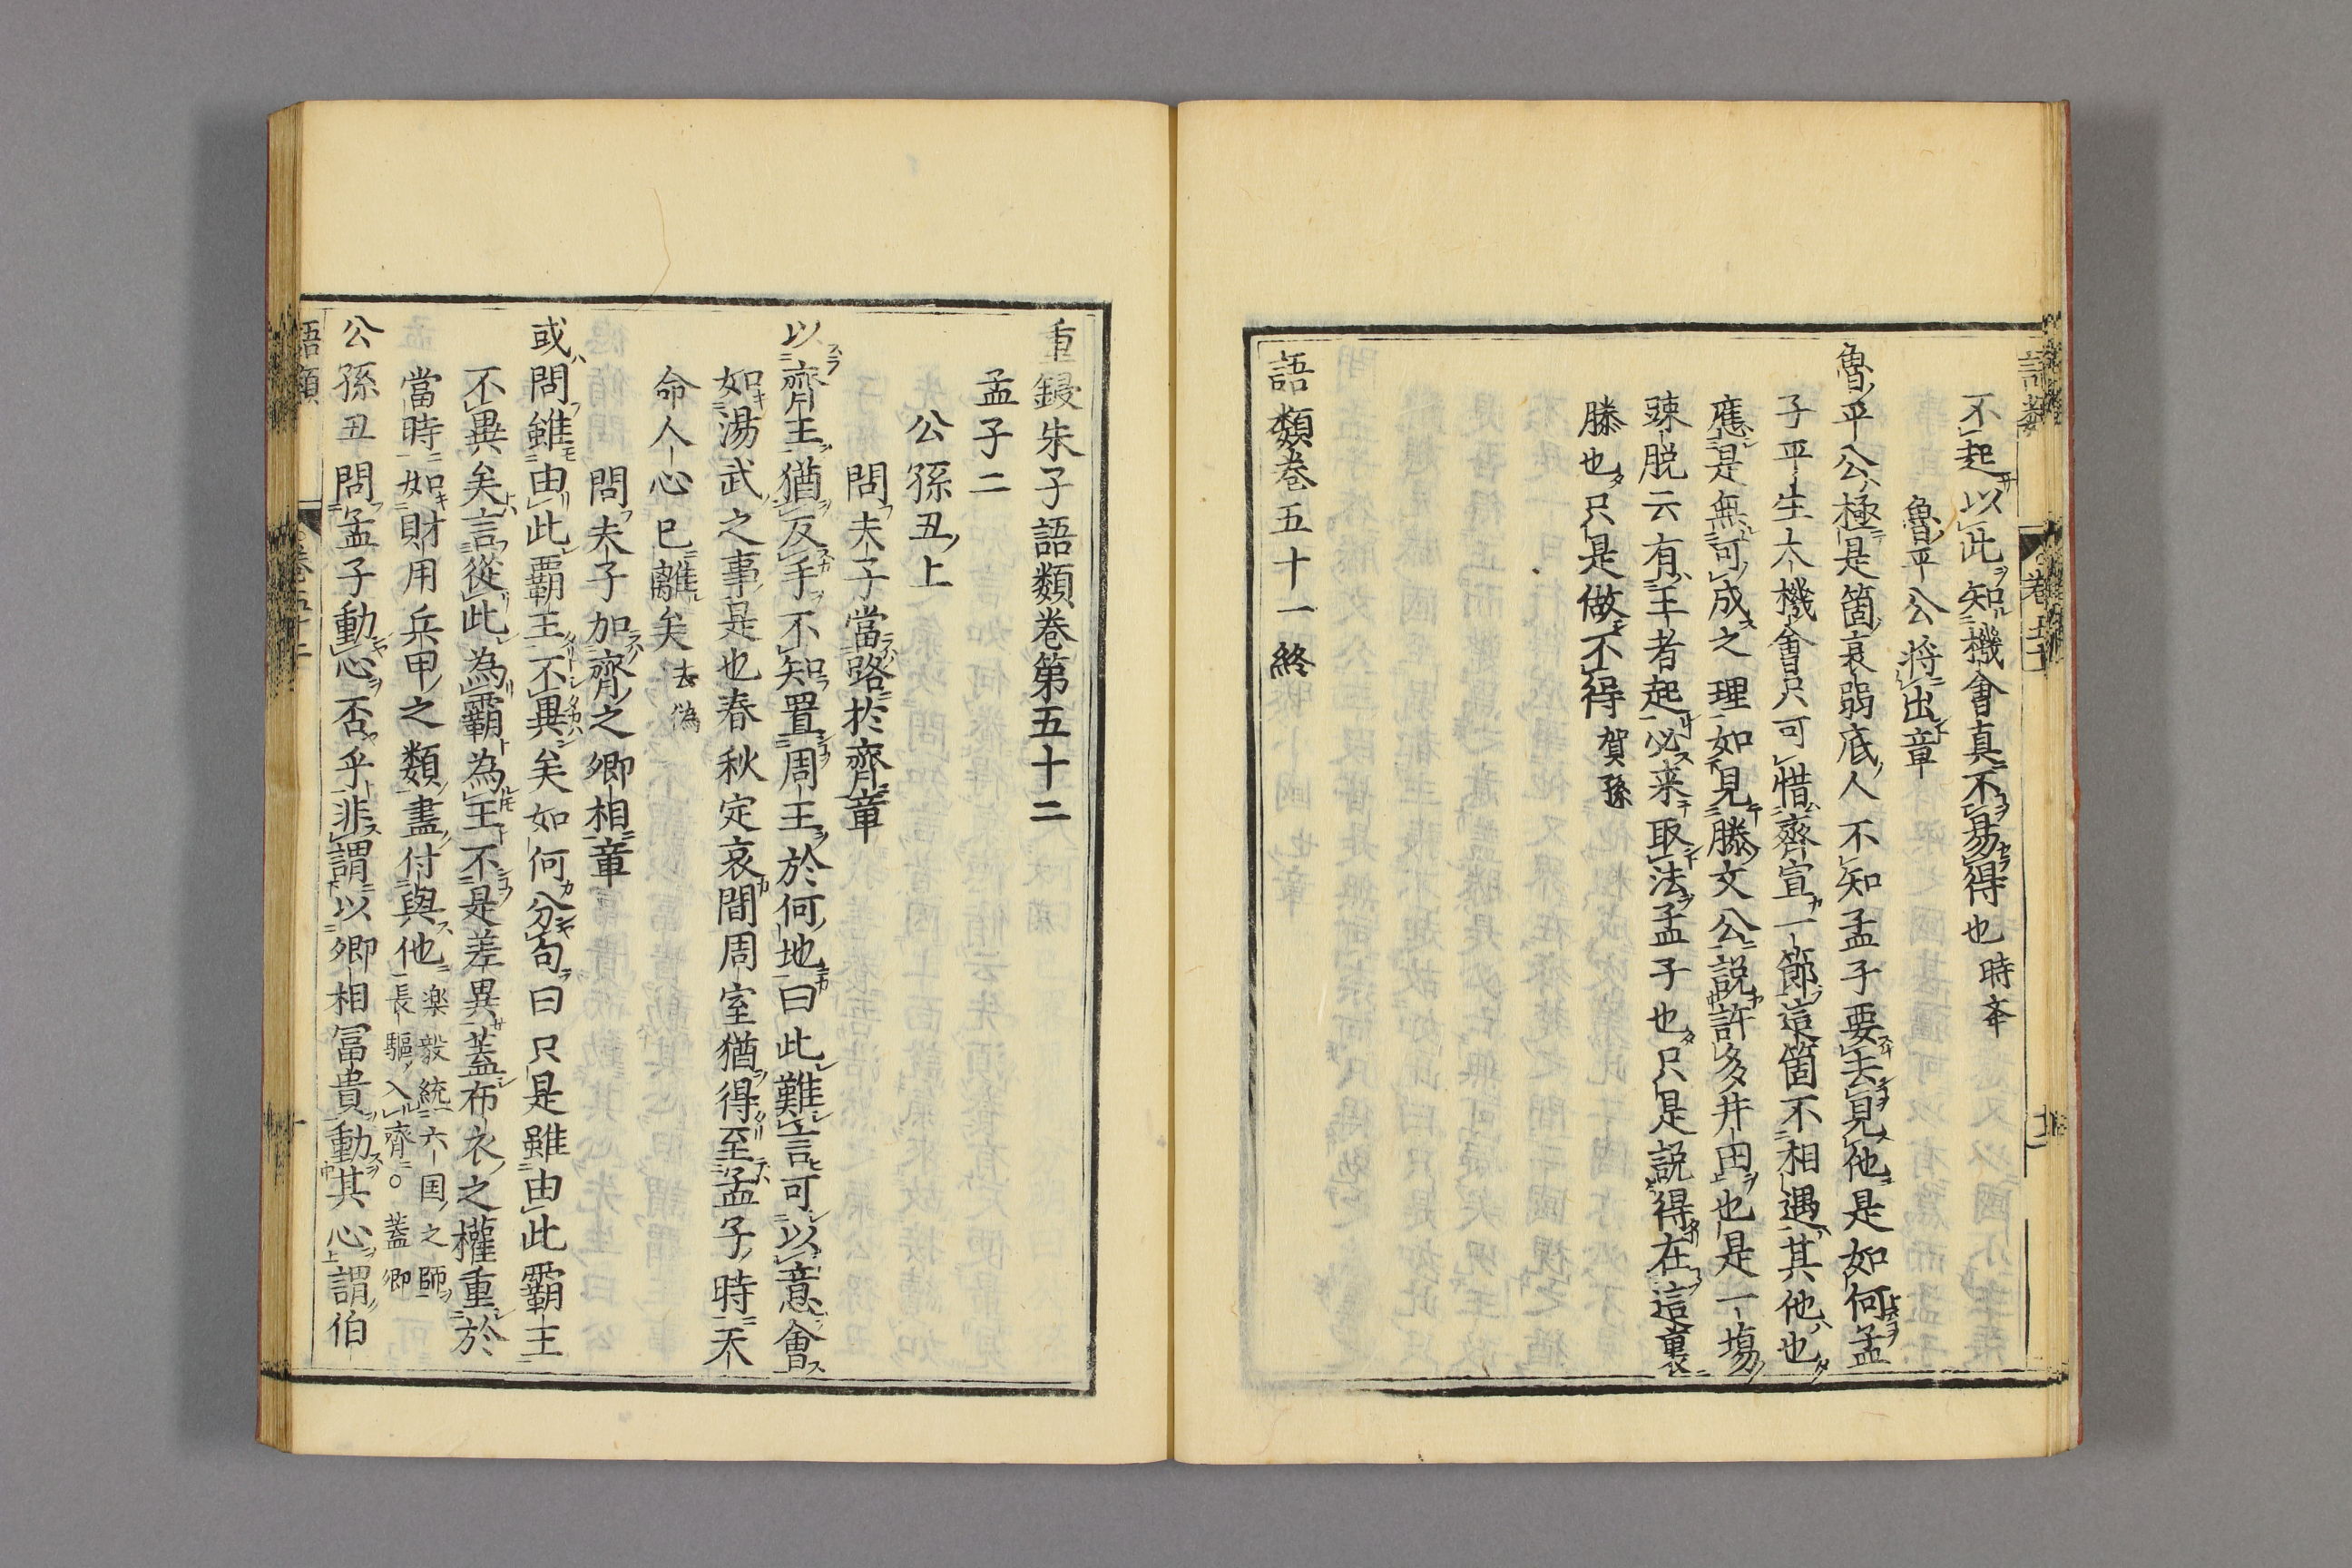 不起以此知機會真不易得也時亲
魯平公將出章
魯平公極是箇衰弱底人不知孟子要去見他是如何孟
子平生大機會只可惜齊宣一節這箇不相遇其他也
應是無可成之理如見滕文公説許多井田也是一塲
疎脱云有王者起必来取法孟子也只是説得在這裏
滕也只是做不得賀孫
語類巻五十一終
重鋟朱子語類巻第五十二
孟子二
公孫丑上
問夫子當路於齊章
以齊王猶反手不知置周王於何地曰此難言可以意會
如湯武之事是也春秋定哀間周室猶得至孟子時天
命人心已離矣去偽
問夫子加齊之卿相章
或問雖由此霸王不異矣如何分句曰只是雖由此霸王
不異矣言從此為霸為王不是差異蓋布衣之權重於
當時如財用兵甲之類盡付與他楽毅統六国之師長驅入齊○蓋卿
公孫丑問孟子動心否乎非謂以卿相冨貴動其心謂伯
語類 巻五十二